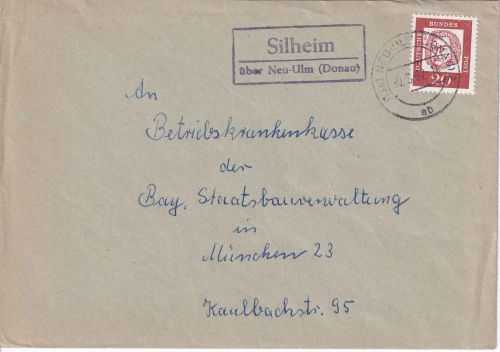 Silheim
über Neu-Ulm (Donau)
DEUTSCHE
BUNDES
POST
20
NEU-ULM
ab
An
Betriebskrankenkasse
der
Bay. Staatsbauverwaltung
in
München 23
Kaulbachstr. 95